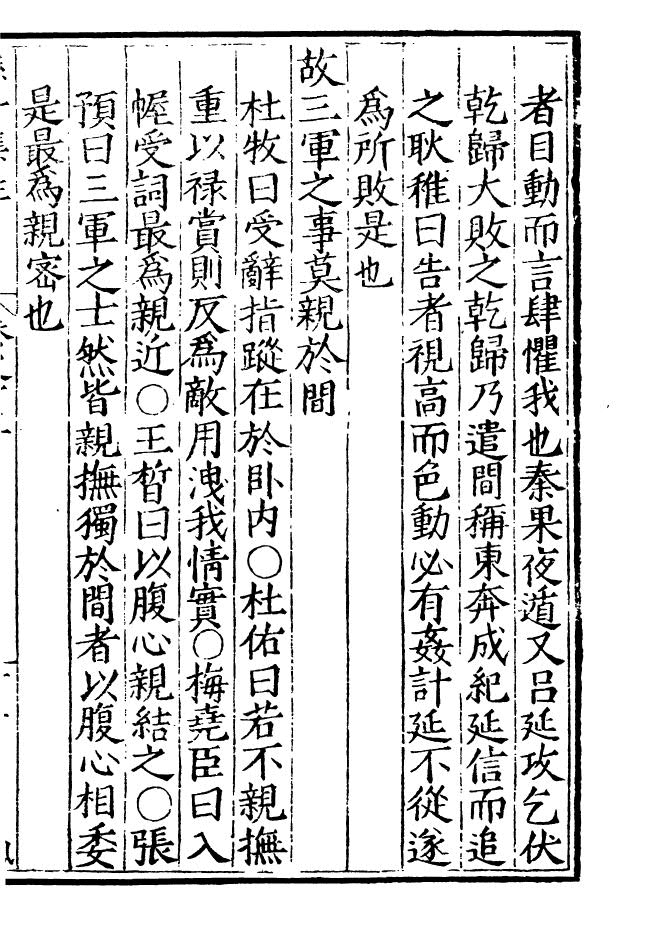 者目動而言肆懼我也秦果夜遁又吕延攻乞伏
乾歸大敗之乾歸乃遣間稱東奔成紀延信而追
之耿稚曰告者視高而色動必有姦計延不從遂
爲所敗是也
故三軍之事莫親於間
杜牧曰受辭指蹤在於卧内○杜佑曰若不親撫
重以禄賞則反爲敵用洩我情實○梅堯臣曰入
幄受詞最爲親近○王晳曰以腹心親結之○張
預曰三軍之士然皆親撫獨於間者以腹心相委
是最爲親密也